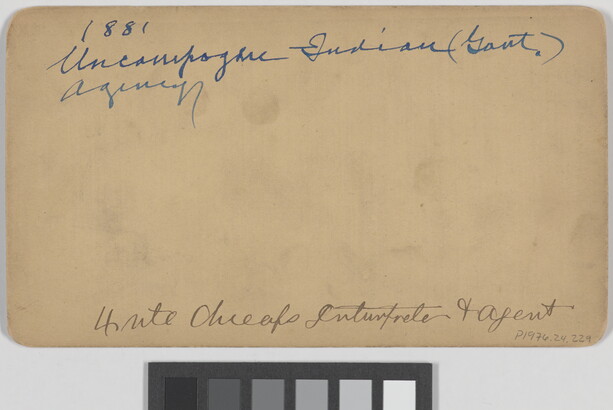 1881
Uncompagre Indian (Govt.)
Agency
4 ute Cheafs Interpreter & Agent
P1976.24.229